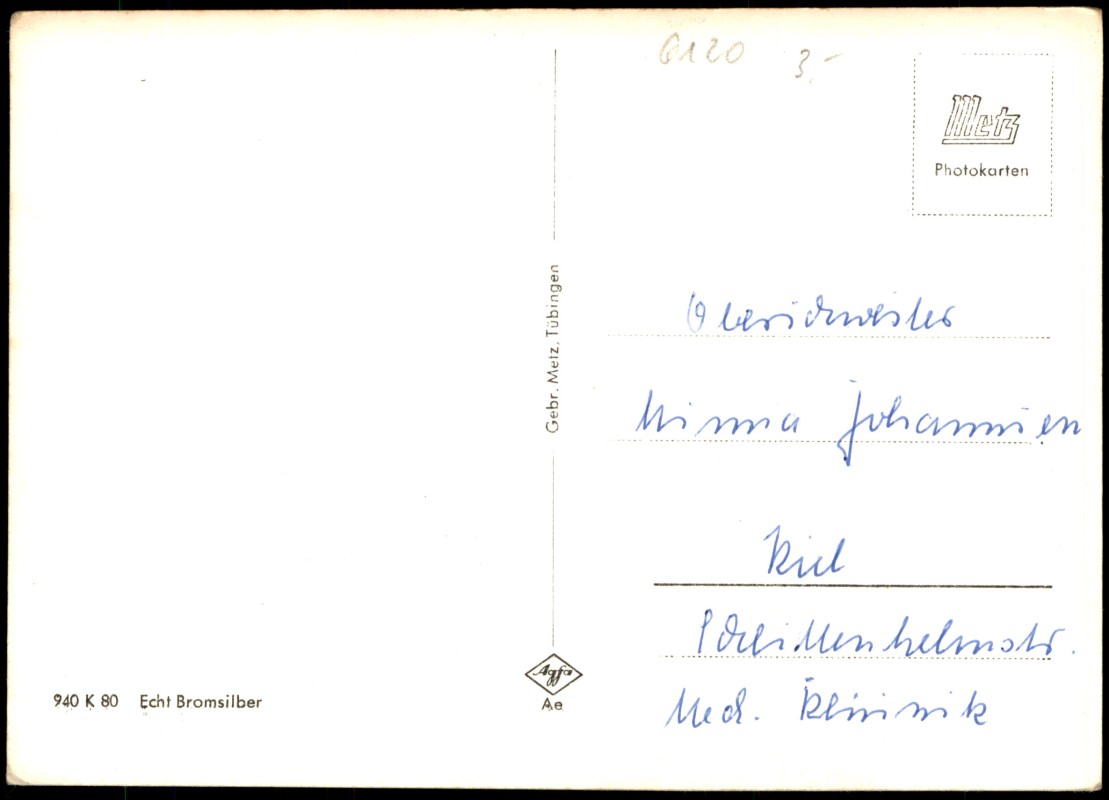 6120 3,-
Metz
Photokarten
Gebr. Metz, Tübingen
Oberschwester
Minna Johannsen
Kiel
Schittenhelmstr.
Med. Klinik
Agfa
Ae
940 K 80 Echt Bromsilber